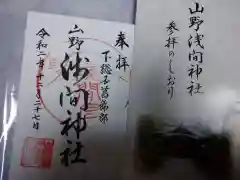 奉拝
下総国葛飾郡
山野
浅間神社
令和二年十二月二十七日
山野浅間神社
参拝のしおり